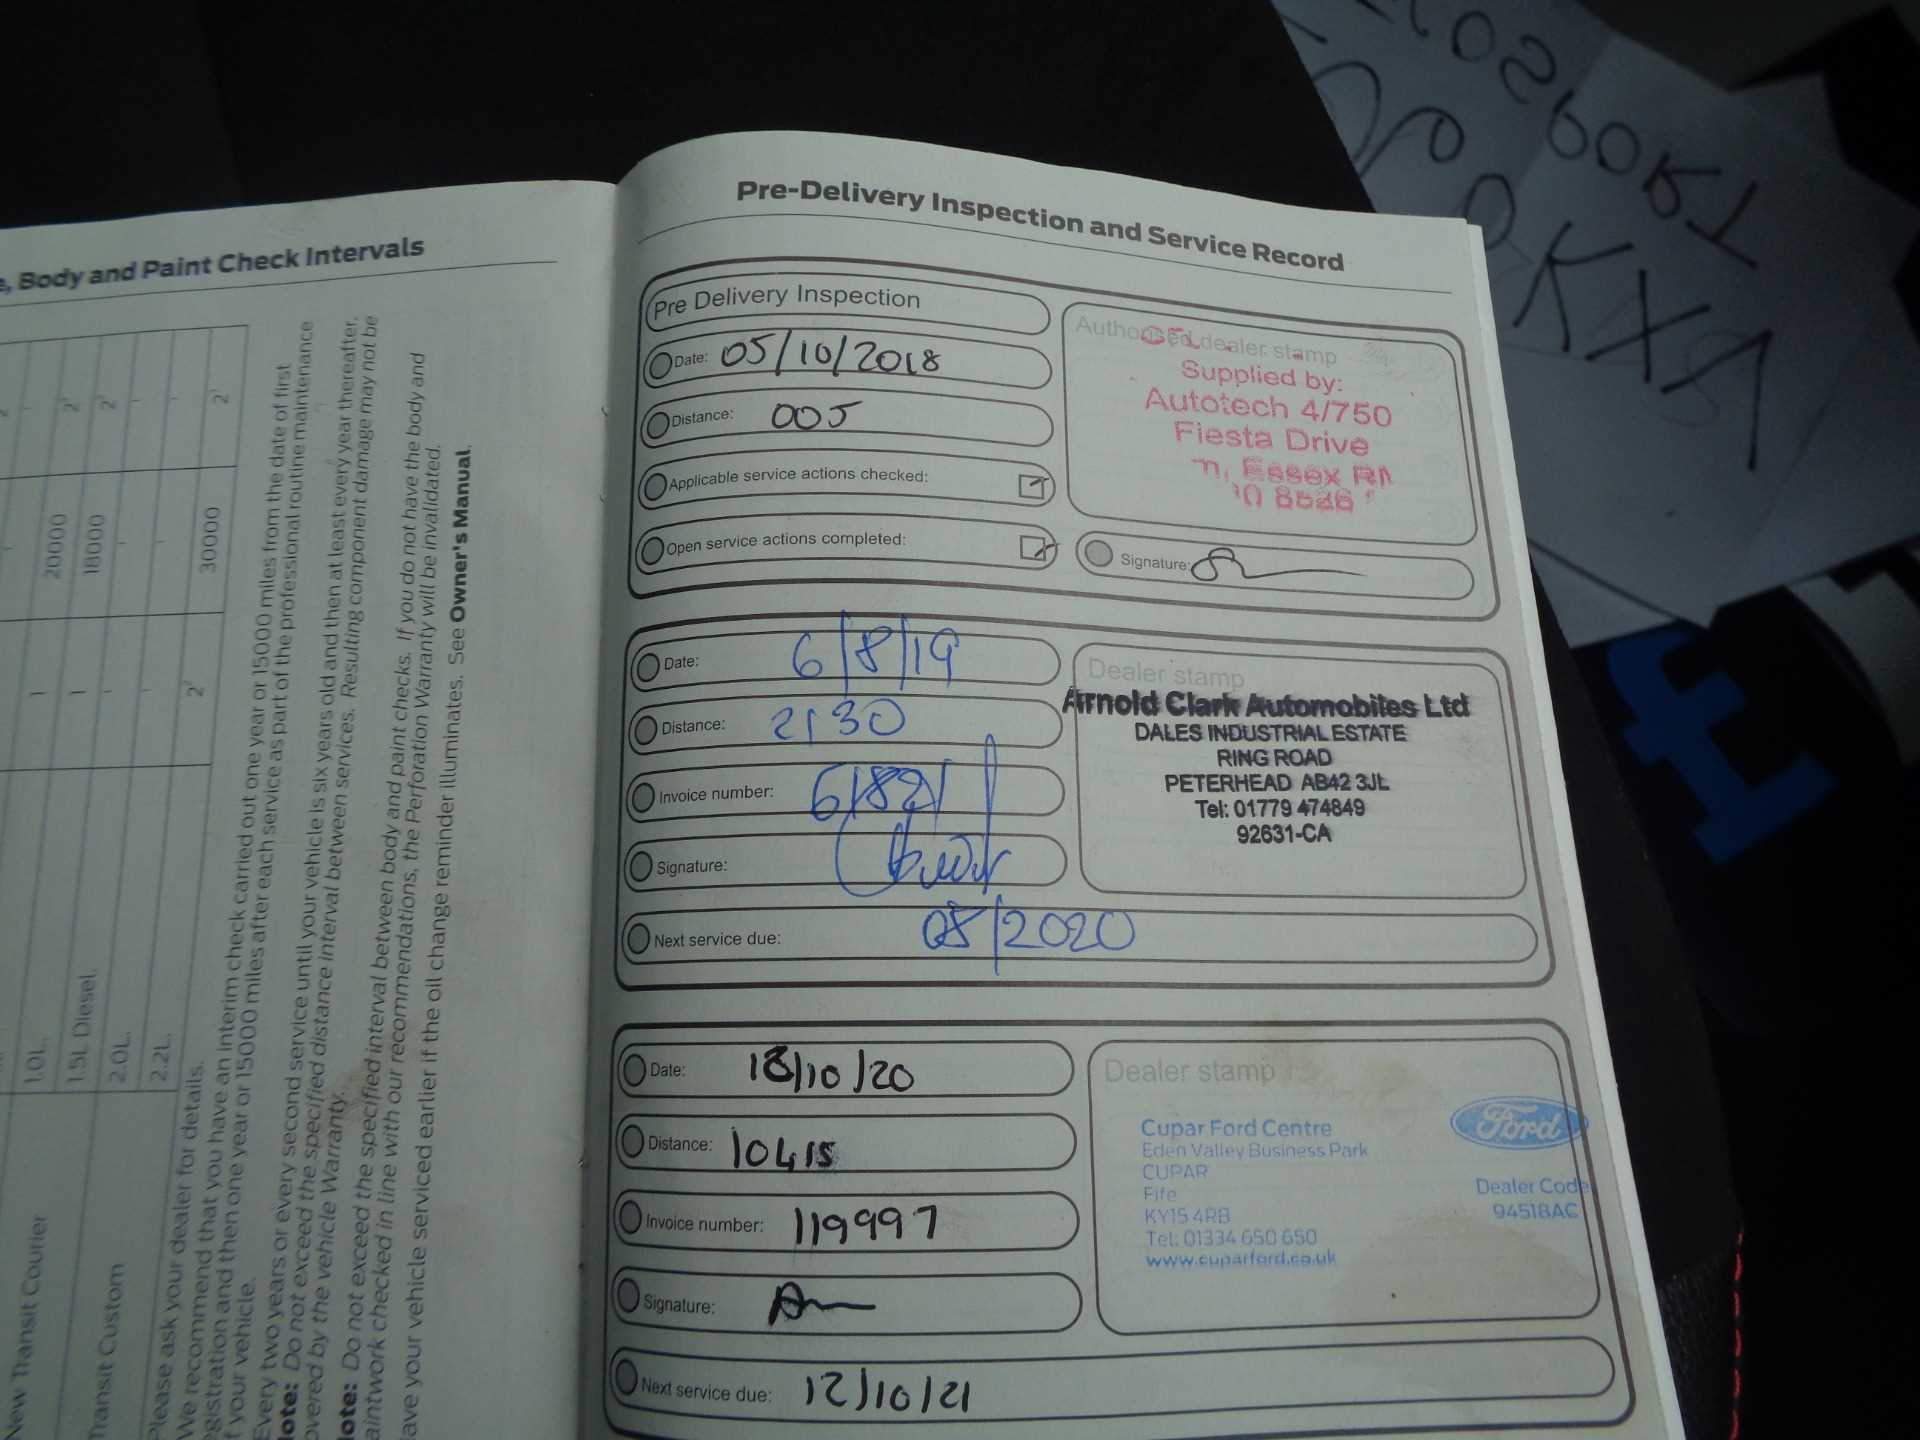 , Body and Paint Check Intervals
20000
18000
30000
1.0L.
1.5L Diesel.
2.0L.
2.2L.
New Transit Courier
Transit Custom
Please ask your dealer for details.
We recommend that you have an interim check carried out one year or 15000 miles from the date of first
egistration and then one year or 15000 miles after each service as part of the professional routine maintenance
f your vehicle.
Every two years or every second service until your vehicle is six years old and then at least every year thereafter.
Note: Do not exceed the specified distance interval between services. Resulting component damage may not be
overed by the vehicle Warranty.
Note: Do not exceed the specified interval between body and paint checks. If you do not have the body and
aintwork checked in line with our recommendations, the Perforation Warranty will be invalidated.
Have your vehicle serviced earlier if the oil change reminder illuminates. See Owner's Manual.
Pre-Delivery Inspection and Service Record
Pre Delivery Inspection
Date: 05/10/2018
Distance: 005
Applicable service actions checked:
Open service actions completed:
Authorised dealer stamp
Supplied by:
Autotech 4/750
Fiesta Drive
Essex RM
Signature:
Date: 6/8/19
Distance: 2130
Invoice number:
Signature:
Next service due: 08/2020
Dealer stamp
Arnold Clark Automobiles Ltd
DALES INDUSTRIAL ESTATE
RING ROAD
PETERHEAD AB42 3JL
Tel: 01779 474849
92631-CA
Date: 13/10/20
Distance: 10415
Invoice number: 119997
Signature:
Next service due: 12/10/21
Dealer stamp
Cupar Ford Centre
Eden Valley Business Park
CUPAR
Fife
KY15 4RB
Tel: 01334 650 650
www.cuparford.co.uk
Ford
Dealer Code
94518AC